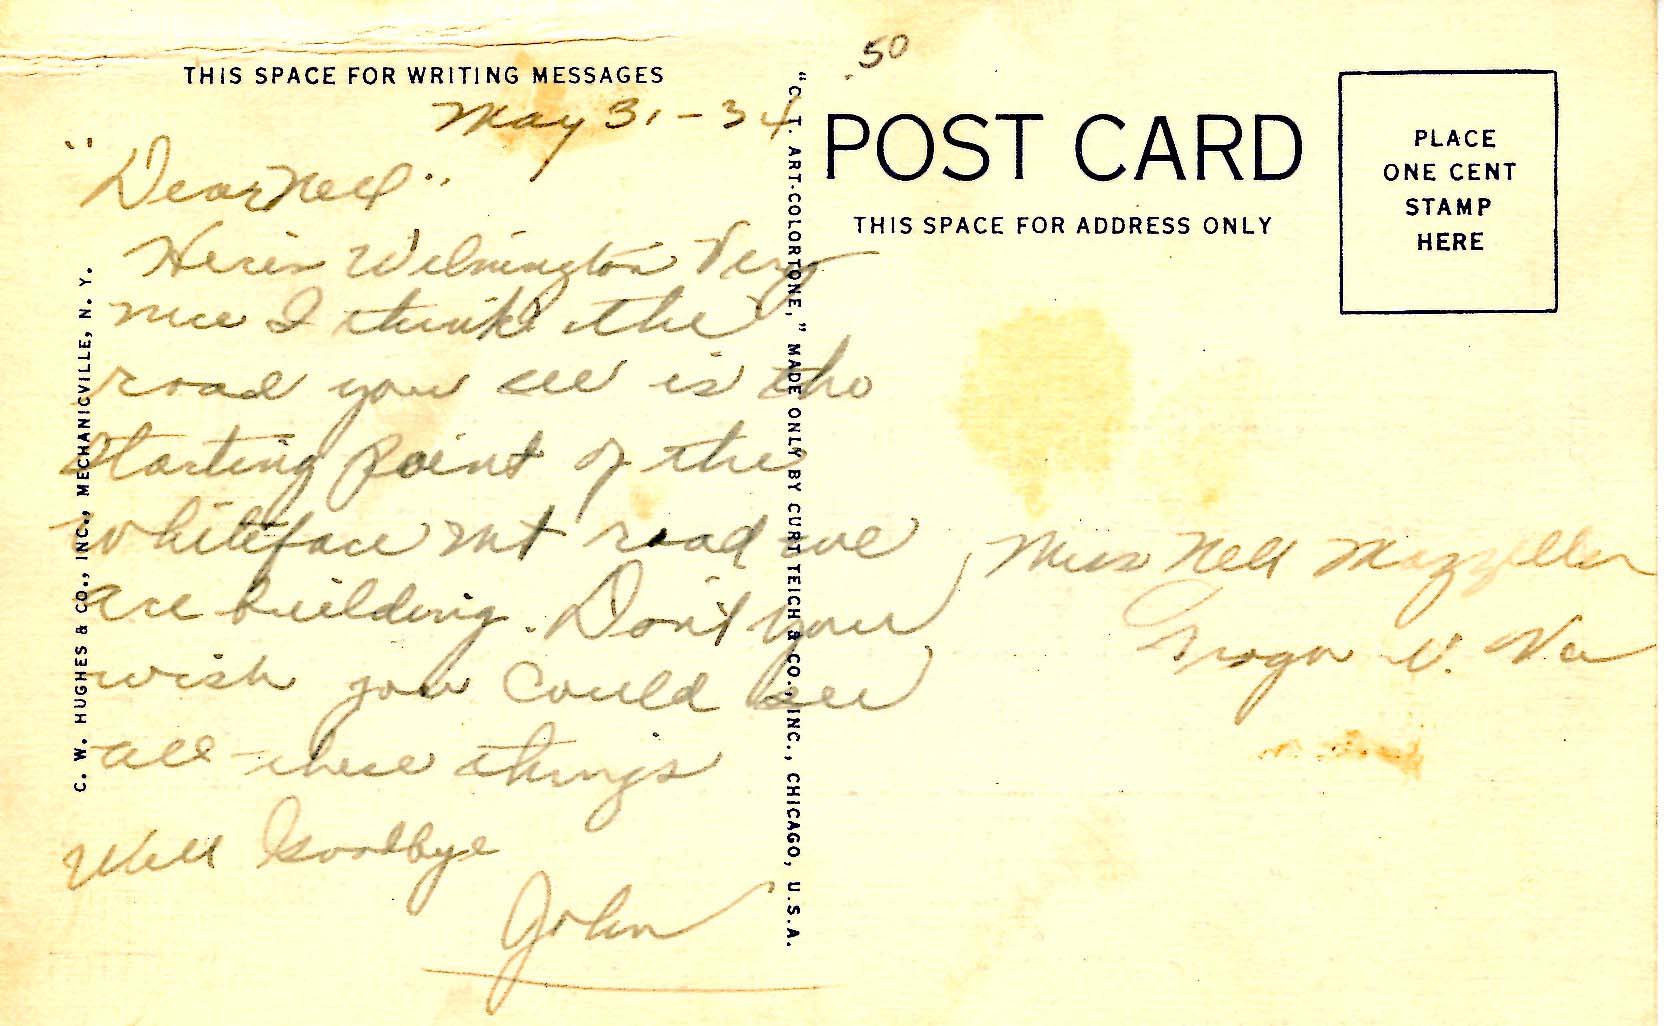 THIS SPACE FOR WRITING MESSAGES
May 31-34
"Dear Nell"
Here is Wilmington Very
nice I think the
road you see is the
Starting point of the
Whiteface Mt road we
are building. Don't you
wish you could see
all these things
Well Goodbye
John
C. W. HUGHES & CO., INC., MECHANICVILLE, N. Y.
"C. T. ART-COLORTONE," MADE ONLY BY CURT TEICH & CO., INC., CHICAGO, U.S.A.
.50
POST CARD
THIS SPACE FOR ADDRESS ONLY
PLACE
ONE CENT
STAMP
HERE
Miss Nell
W. Va